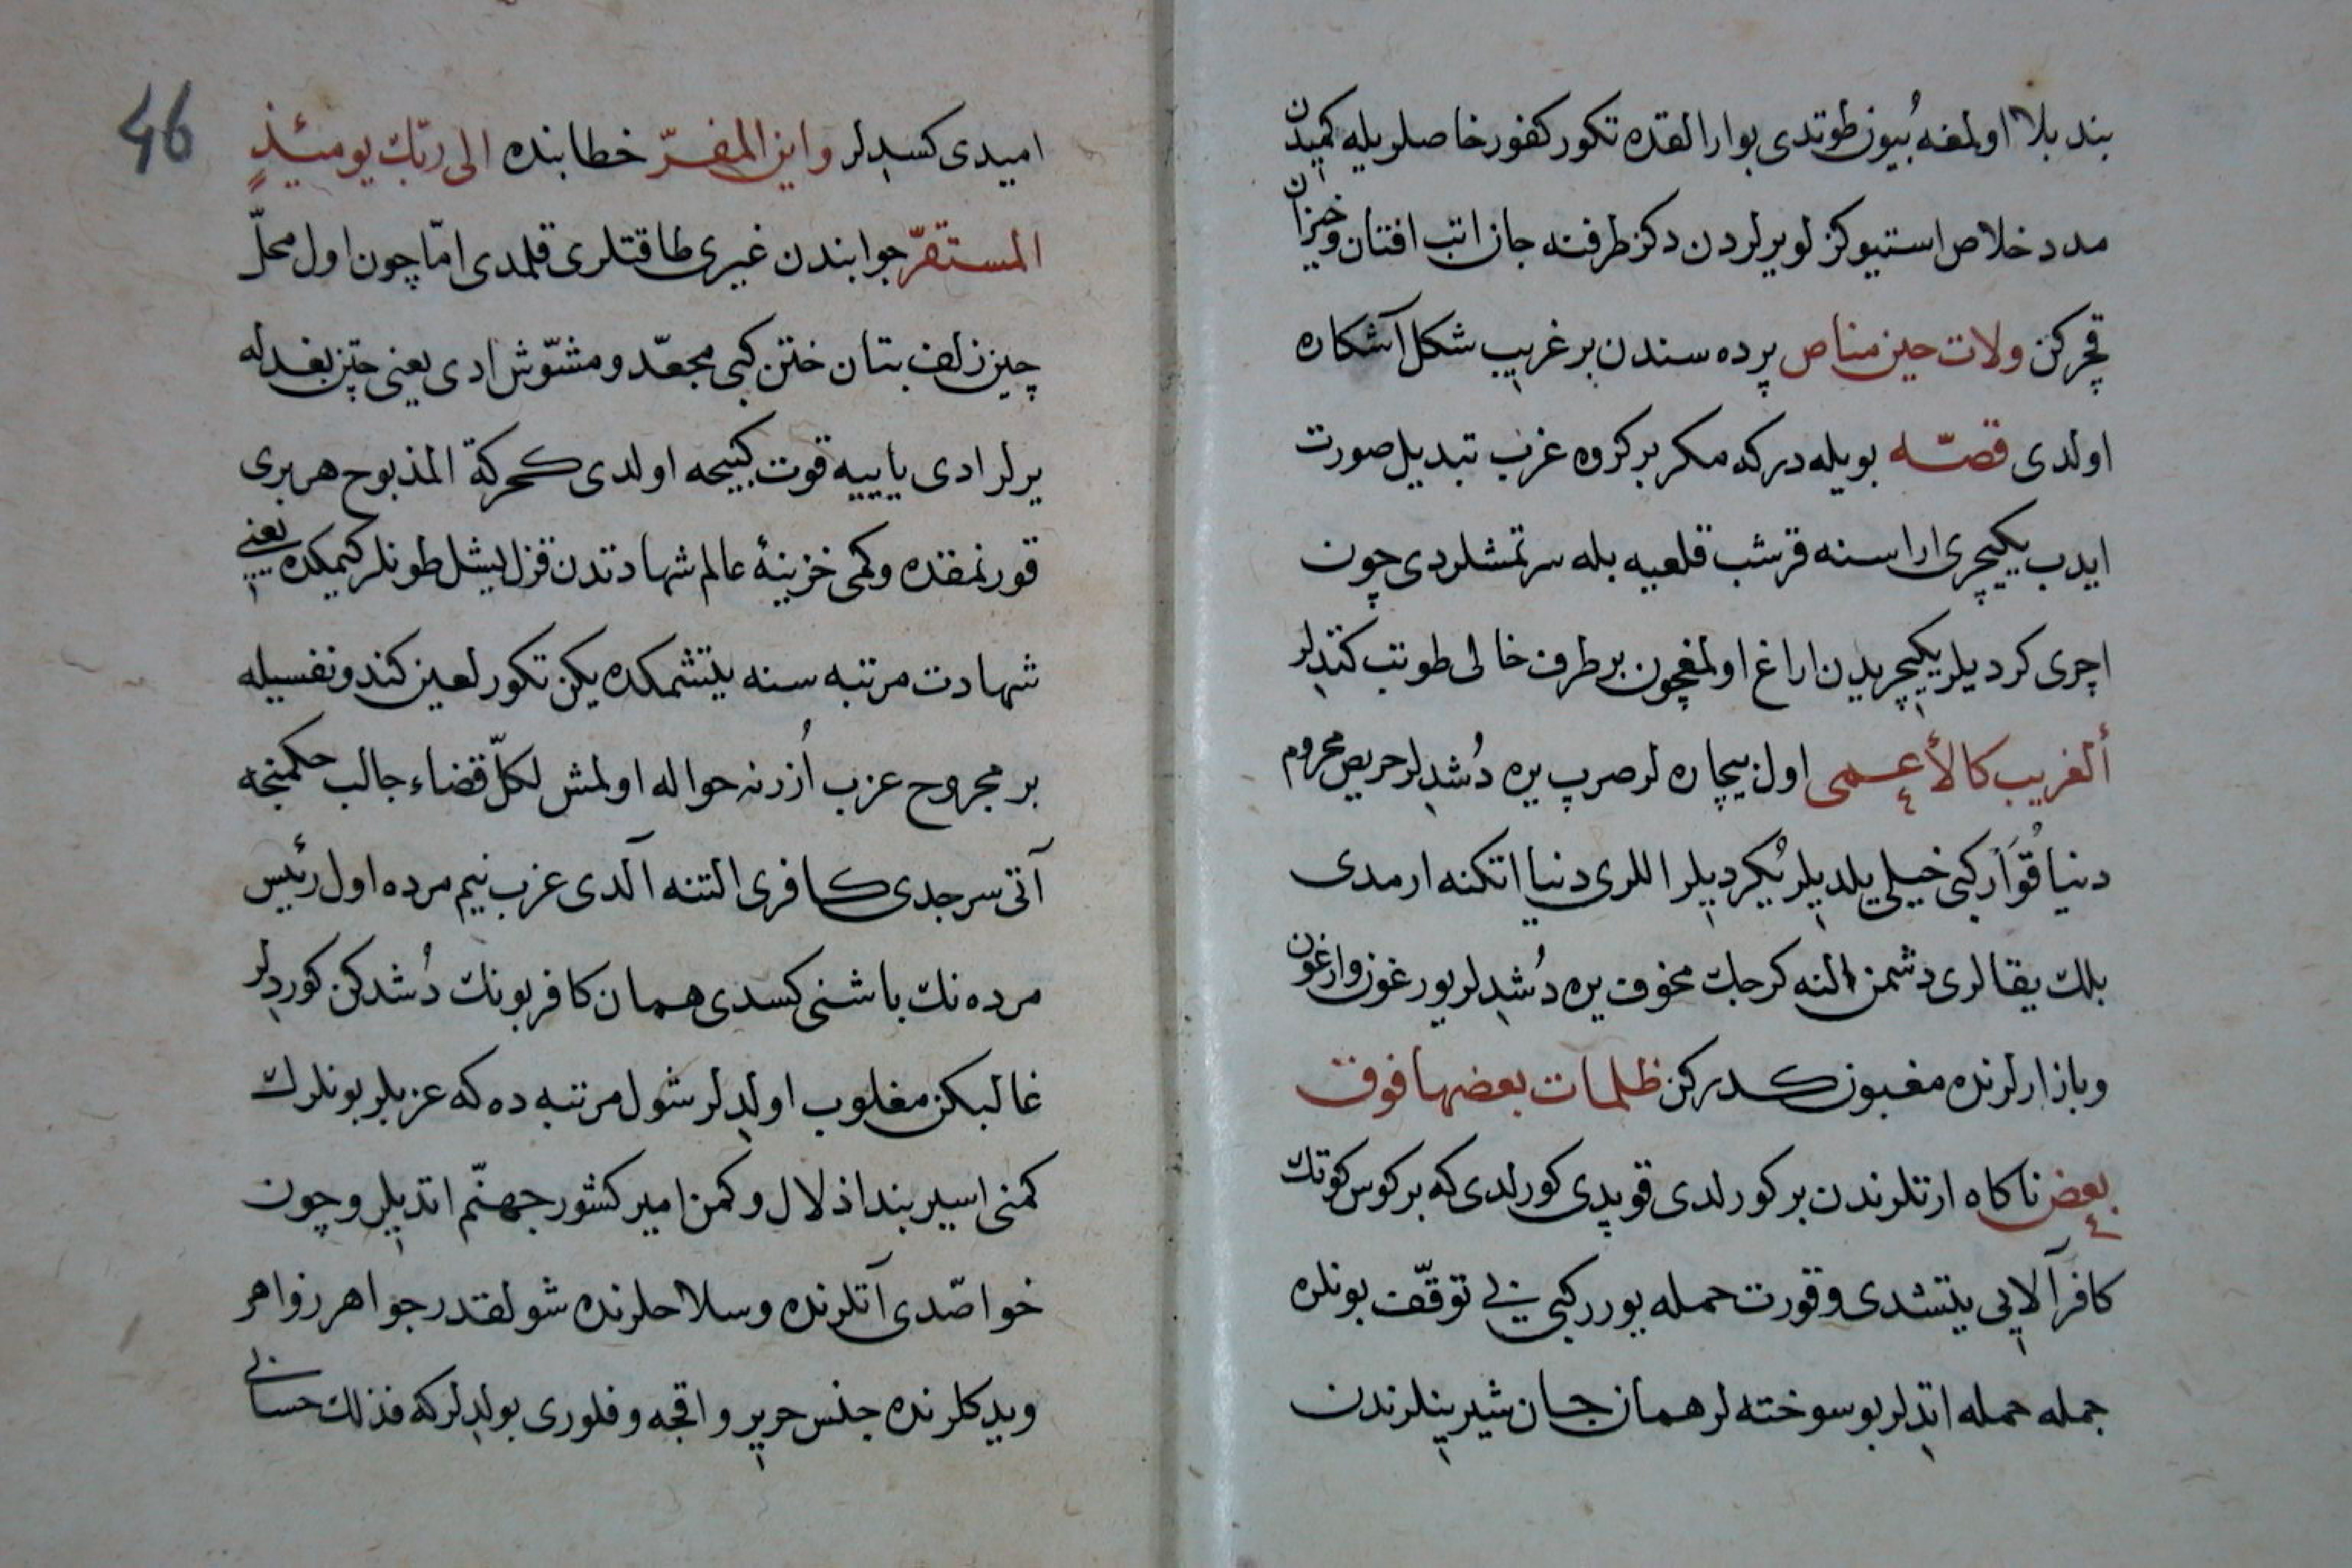 بند بلا اولمغه بُیون طوتدی بوارالقده تکور کفور خاصلریله کمیدن
مدد خلاص استیو کزلو یرلردن دکز طرفنه جان اتب افتان وخیزان
قچرکن ولات حین مناص پرده سندن بر غریب شکل آشکاره
اولدی قصّه بویله درکه مکر بر کروه عزب تبدیل صورت
ایدب یکیچری اراسنه قرشب قلعیه بله سرتمشلردی چون
اچری کردیلر یکیچریدن اراغ اولمغچون بر طرف خالی طوتب کتدلر
ألغریب کالأعمی اول بیچاره لر صرپ یره دُشدلر حریص محروم
دنیا قُوّار کبی خیلی یلدیلر یُکردیلر اللری دنیا اتکنه ارمدی
بلك یقالری دشمن النه کرجك مخوف یره دُشدلر یورغون وارغون
وبازارلرنده مغبون کدرکن ظلمات بعضها فوق
بعض ناکاه ارتلرندن بر کورلدی قوپدی کورلدی که بر کوس کوتك
کافر آلایی یتشدی وقورت حمله یورر کبی بی توقّف بونلره
جمله حمله اتدلر بو سوخته لر همان جان شیرینلرندن
46
امیدی کسدلر واین المفرّ خطابنده الی ربّك یومئذٍ
المستقرّ جوابندن غیری طاقتلری قلمدی امّا چون اول محلّ
چین زلف بتان ختن کبی مجعّد ومشوّش ادی یعنی چتن بغدله
یرلر ادی یاییه قوت کبیجه اولدی کحرکة المذبوح هر بری
قورنمقده وکمی خزینۀ عالم شهادتدن قزل یشل طونلر کیمکده یعنی
شهادت مرتبه سنه یتشمکده یکن تکور لعین کندو نفسیله
بر مجروح عزب اُزرنه حواله اولمش لکلّ قضاء جالب حکمنجه
آتی سرجدی کافری التنه آلدی عزب نیم مرده اول رئیس
مرده نك باشنی کسدی همان کافر بونك دُشدکن کوردلر
غالبکن مغلوب اولدلر شول مرتبه ده که عزبلر بونلرك
کمنی اسیر بند اذلال وکمن امیر کشور جهنّم اتدیلر وچون
خواصّدی آتلرنده وسلاحلرنده شولقدر جواهر زواهر
ویدکلرنده جنس حریر واقچه وفلوری بولدلرکه فذلك حسابی